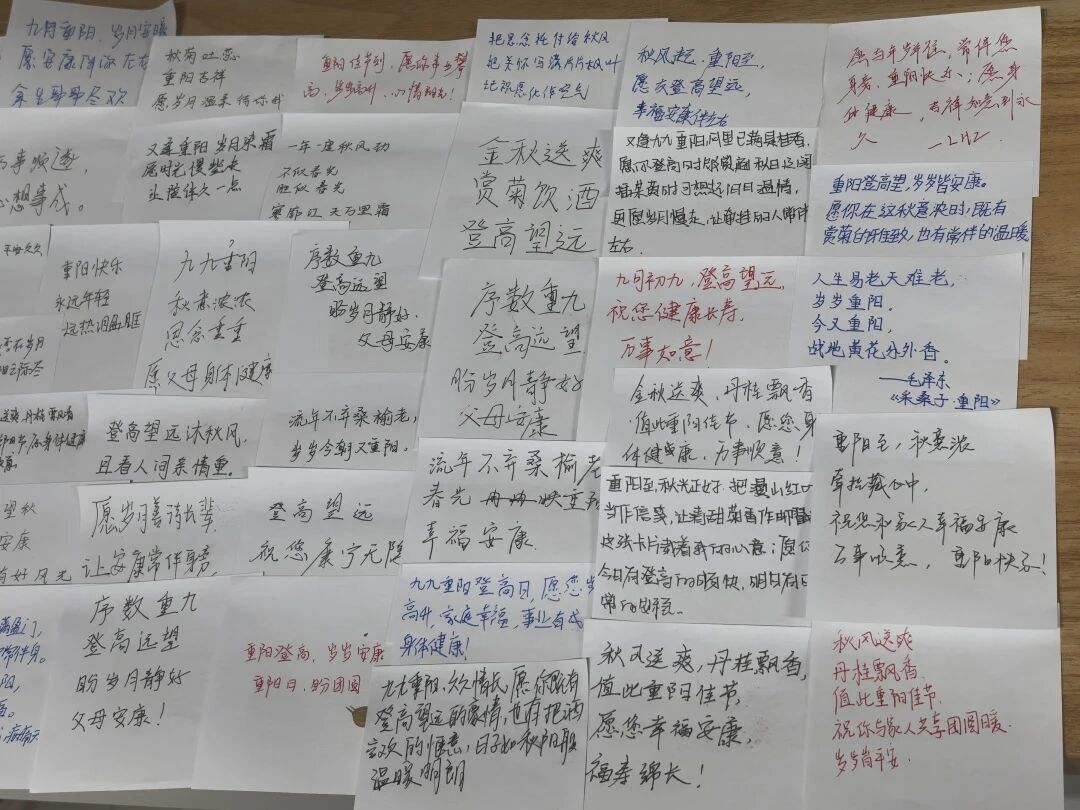 九月重阳，岁月安暖
愿安康
余生
秋菊吐蕊
重阳吉祥
愿岁月温柔待你
重阳佳节到，愿你
高，岁岁
把思念托付给秋风
把关怀写满片片枫叶
把祝愿
秋风起，重阳至，
愿夂登高望远，
幸福安康伴左右
愿与年岁
身旁，重阳
体健康，吉祥如意到永
久 —LHZ
万事顺遂
心想事成。
又逢重阳 岁月染霜
愿时光慢些走
让陪伴久一点
一年一度秋风劲
不似春光
胜似春光
寥廓江天万里霜
金秋送爽
赏菊饮酒
登高望远
又逢九九重阳，风里已满是桂香，
愿你登高时
插茱萸时可想起旧日温情，
更愿岁月慢走，让牵挂的人常伴
左右。
重阳登高望，岁岁皆安康。
愿你在这秋意浓时，既有
赏菊的雅致，也有常伴的温暖
重阳快乐
永远年轻
远热泪盈眶
九九重阴
秋意浓浓
思念重重
愿父母身体健康
序数重九
登高远望
盼岁月静好，
父母安康
序数重九
登高远望
盼岁月静好
父母安康
九月初九，登高望远
祝您健康长寿，
万事如意！
人生易老天难老，
岁岁重阳。
今又重阳，
战地黄花分外香。
——毛泽东
《采桑子·重阳》
送爽，丹桂飘香
登高望远沐秋风，
且看人间亲情重。
流年不弃桑榆老，
岁岁今朝又重阳。
金秋送爽、丹桂飘香
值此重阳佳节、愿您身
体健康、万事顺意！
流年不弃桑榆老
春光
幸福安康
重阳至，秋意浓
牵挂藏心中，
祝您和家人幸福安康
万事顺意，重阳快乐！
望秋
安康
有好风光
愿岁月善待长辈，
让安康常伴身旁，
登高望远
祝您康宁无限
重阳至，秋光正好，把漫山红叶
当作信笺，让
这张卡片载着我的心意：愿你
今日有登高的畅快，明日有日
常的安稳。
序数重九
登高远望
盼岁月静好
父母安康！
重阳登高，岁岁安康
重阳日，盼团圆
九九重阳登高日，愿您步
高升，家庭幸福，事业有成
身体健康！
九九重阳，久久情长，愿你既有
登高望远的豪情，也有把酒
言欢的惬意，日子如秋阳般
温暖明朗
秋风送爽，丹桂飘香，
值此重阳佳节，
愿您幸福安康，
福寿绵长！
秋风送爽
丹桂飘香
值此重阳佳节
祝你与家人共享团圆暖
岁岁皆平安
满盈门，
常伴身。